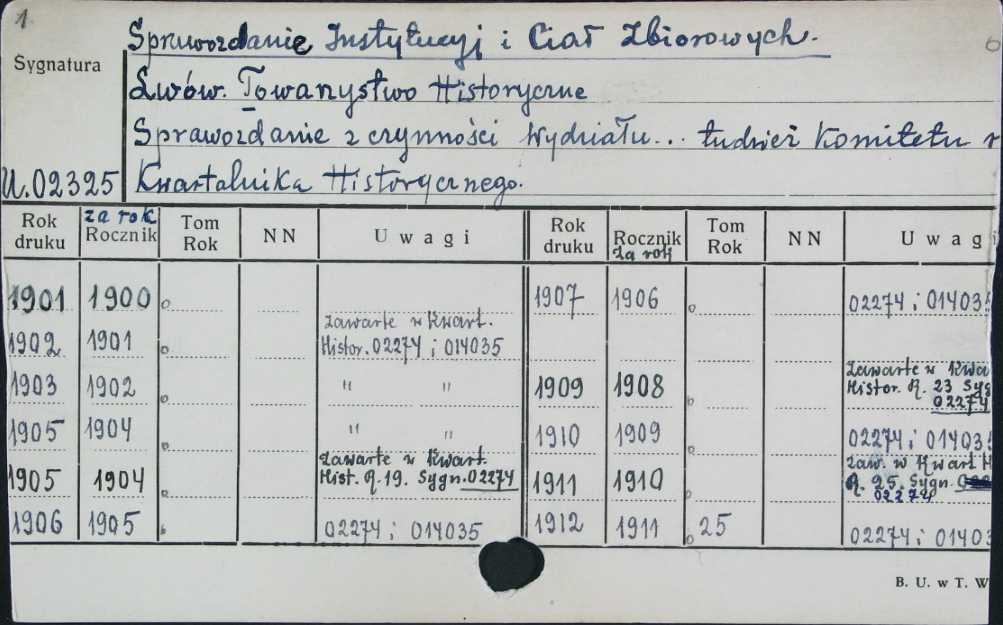 1
Sprawozdanie Instytucyj i Ciał Zbiorowych.
6
Sygnatura
Lwów. Towarzystwo Historyczne
Sprawozdanie z czynności Wydziału... tudzież Komitetu r
U.02325 Kwartalnika Historycznego.
Rok druku za rok Rocznik Tom Rok NN Uwagi Rok druku Rocznik za rok Tom Rok NN Uwagi
1901 1900 1907 1906 02274 i 014035
1902 1901 zawarte w Kwart. Histor. 02274 i 014035
1903 1902 " " 1909 1908 zawarte w Kwa Histor. R. 23 Syg 02274
1905 1904 " " 1910 1909 02274 i 01403
1905 1904 zawarte w Kwart. Hist. R. 19. Sygn. 02274 1911 1910 zaw. w Kwart H R. 25. Sygn. 02274
1906 1905 02274 i 014035 1912 1911 25 02274 i 01403
B. U. w T. W